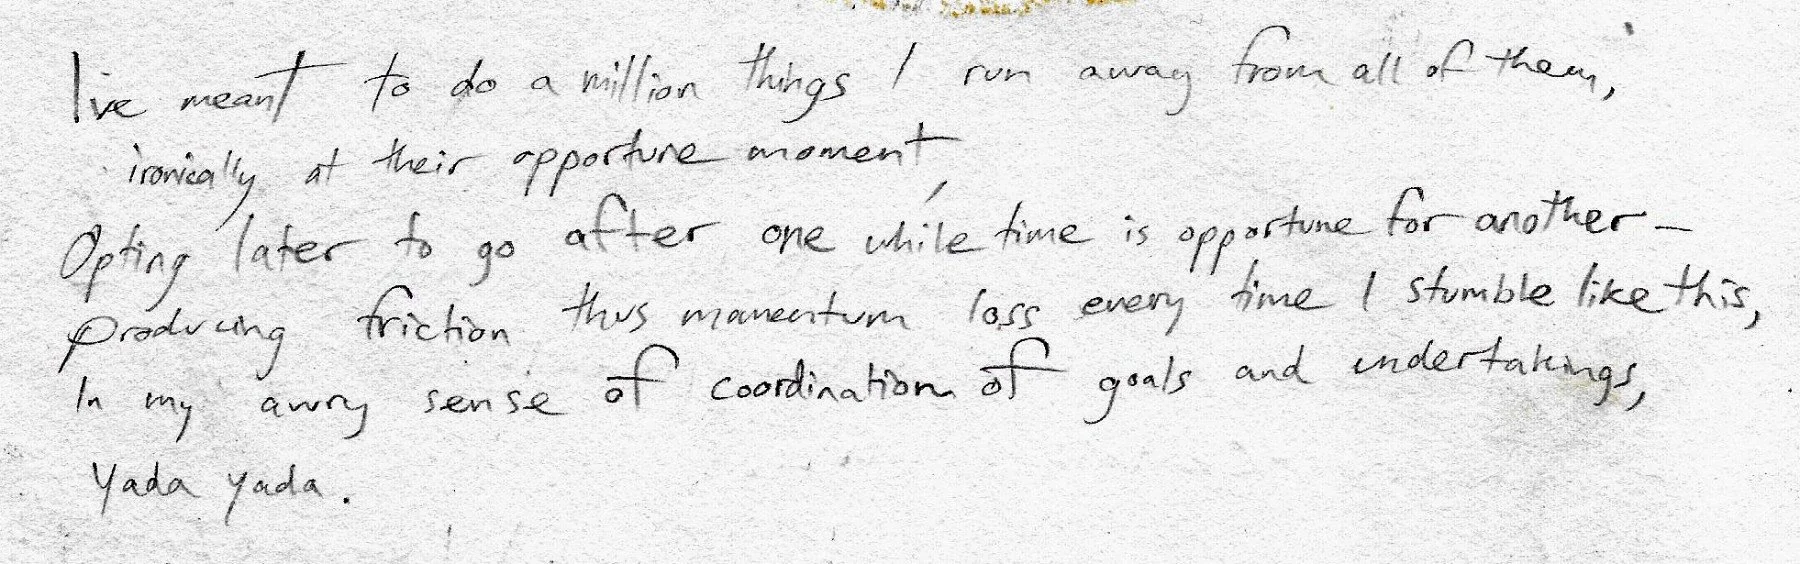 I've meant to do a million things I run away from all of them,
ironically at their opportune moment,
Opting later to go after one while time is opportune for another –
producing friction thus momentum loss every time I stumble like this,
In my awry sense of coordination of goals and undertakings,
Yada yada.